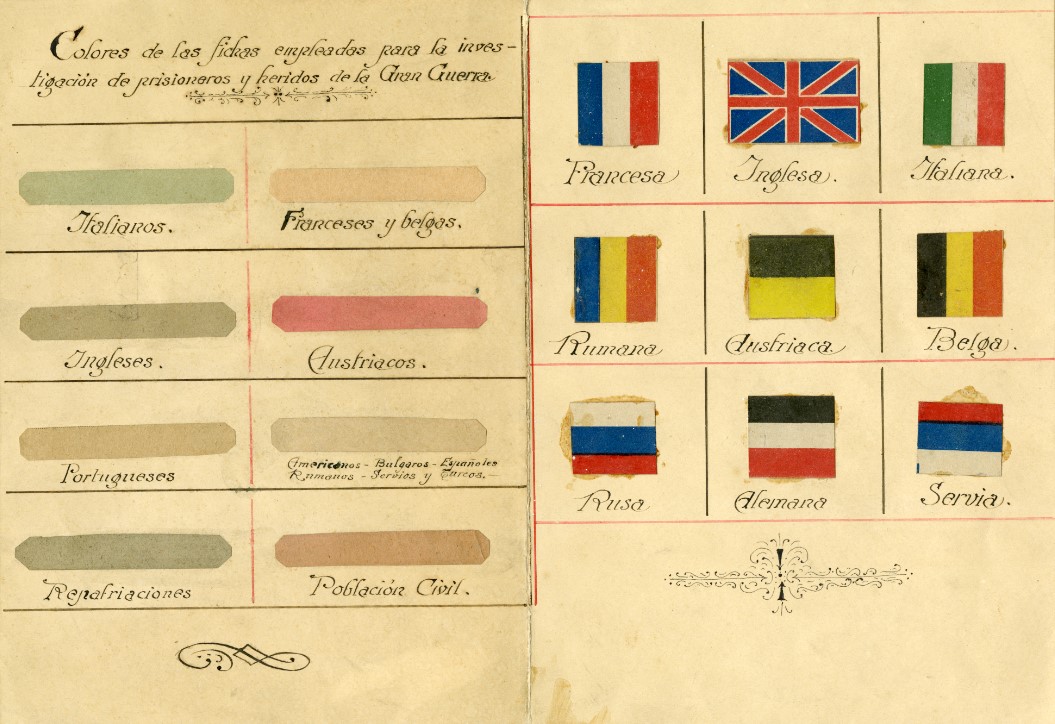 Colores de las fichas empleadas para la inves-
tigación de prisioneros y heridos de la Gran Guerra
Italianos.
Franceses y belgas.
Ingleses.
Austriacos.
Portugueses
Americanos - Bulgaros - Españoles
Rumanos - Servios y Turcos. -
Repatriaciones
Población Civil.
Francesa
Inglesa.
Italiana.
Rumana
Austriaca.
Belga.
Rusa
Alemana
Servia.